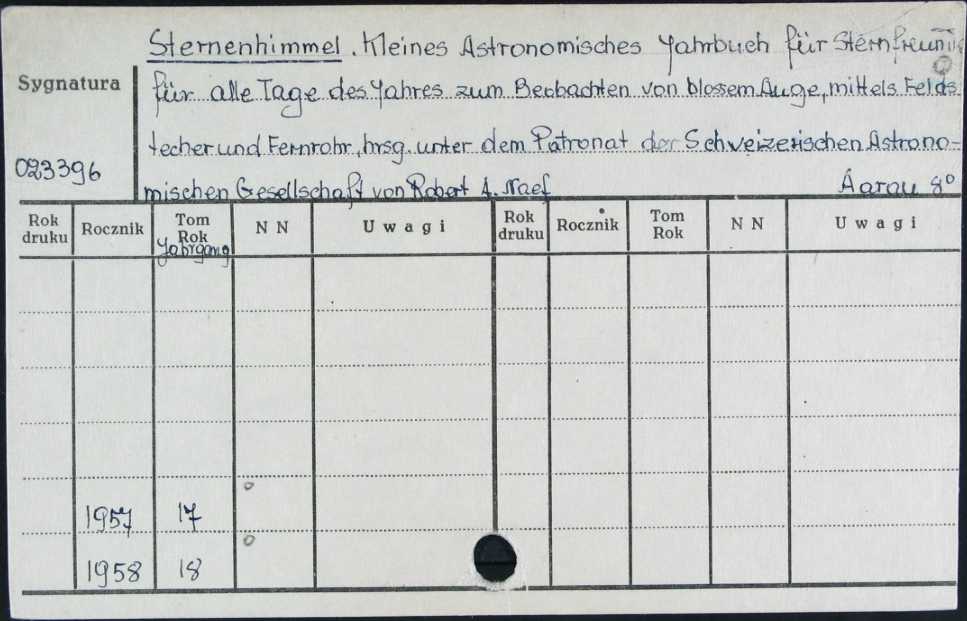 Sternenhimmel. Kleines Astronomisches Jahrbuch für Sternfreunde
Sygnatura
für alle Tage des Jahres zum Beobachten von blossem Auge, mittels Felds
techer und Fernrohr, hrsg. unter dem Patronat der Schweizerischen Astrono-
023396
mischen Gesellschaft von Robert A. Naef Aarau 8°
Rok druku Rocznik Tom Rok Jahrgang N N Uwagi Rok druku Rocznik Tom Rok N N Uwagi
1957 17
1958 18